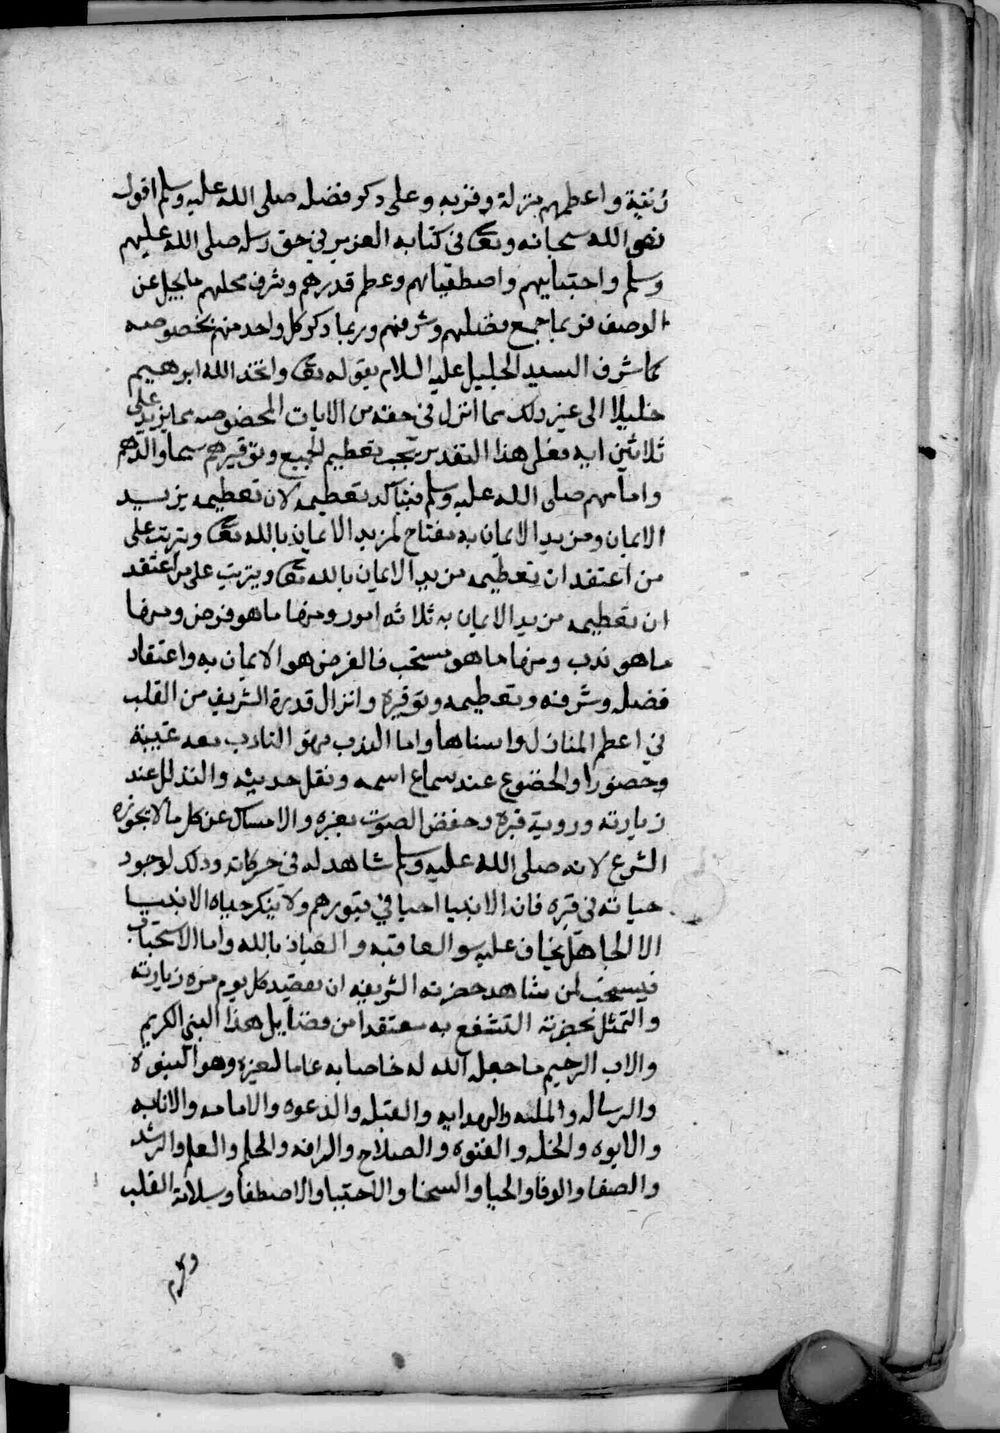 رتبة واعظمهم منزلة وقربه وعلى ذكر فضله صلى الله عليه وسلم اقول
نص الله سبحانه وتعالى في كتابه العزيز في حق رسله صلى الله عليهم
وسلم واجتبايهم واصطفيائهم وعظم قدرهم وشرف محلهم ما يجل عن
الوصف فربما جمع فضلهم وشرفهم وربما ذكر كل واحد منهم بخصوصه
كما شرف السيد الجليل عليه السلام بقوله تعالى واتخذ الله ابرهيم
خليلا الى غير ذلك مما انزل في حقه من الايات المخصوصه مما يزيد على
ثلاثين ايه فعلى هذا التقدير يجب تعظيم الجميع وتوقيرهم سيما والدهم
وامامهم صلى الله عليه وسلم فيتاكد تعظيمه لان تعظيمه يزيد
الايمان ومزيد الايمان به مفتاح لمزيد الايمان بالله تعالى ويترتب على
من اعتقد ان تعظيمه مزيد الايمان بالله تعالى ويترتب على من اعتقد
ان تعظيمه مزيد الايمان به ثلاثه امور ومنها ما هو فرض ومنها
ما هو ندب ومنها ما هو مستحب فالفرض هو الايمان به واعتقاد
فضله وشرفه وتعظيمه وتوقيره وانزال قدره الشريف من القلب
في اعظم المنازل واسناها واما الندب فهو التادب معه غيبة
وحضورا والخضوع عند سماع اسمه ونقل حديثه والتذلل عند
زيارته وروية قبره وخفض الصوت بقبره والامساك عن كل ما لا يجوزه
الشرع لانه صلى الله عليه وسلم شاهد له في حركاته وذلك لوجود
حياته في قبره فان الانبيا احيا في قبورهم ولا ينكر حياه الانبيا
الا الجاهل يخاف عليه سو العاقبه والعياذ بالله واما الاستحباب
فيستحب لمن شاهد حضرته الشريفه ان يقصد كل يوم مره زيارته
والتمثل بحضرته التشفع به معتقدا من فضايل هذا النبي الكريم
والاب الرحيم ما جعل الله له خاصا به عاما لغيره وهو النبوة
والرساله والمله والهدايه والقبله والدعوه والامامه والانابه
والابوه والخله والفتوه والصلاح والرافه والحلم والعلم والرشد
والصفا والوفا والحيا والسخا والاجتبا والاصطفا وسلامة القلب